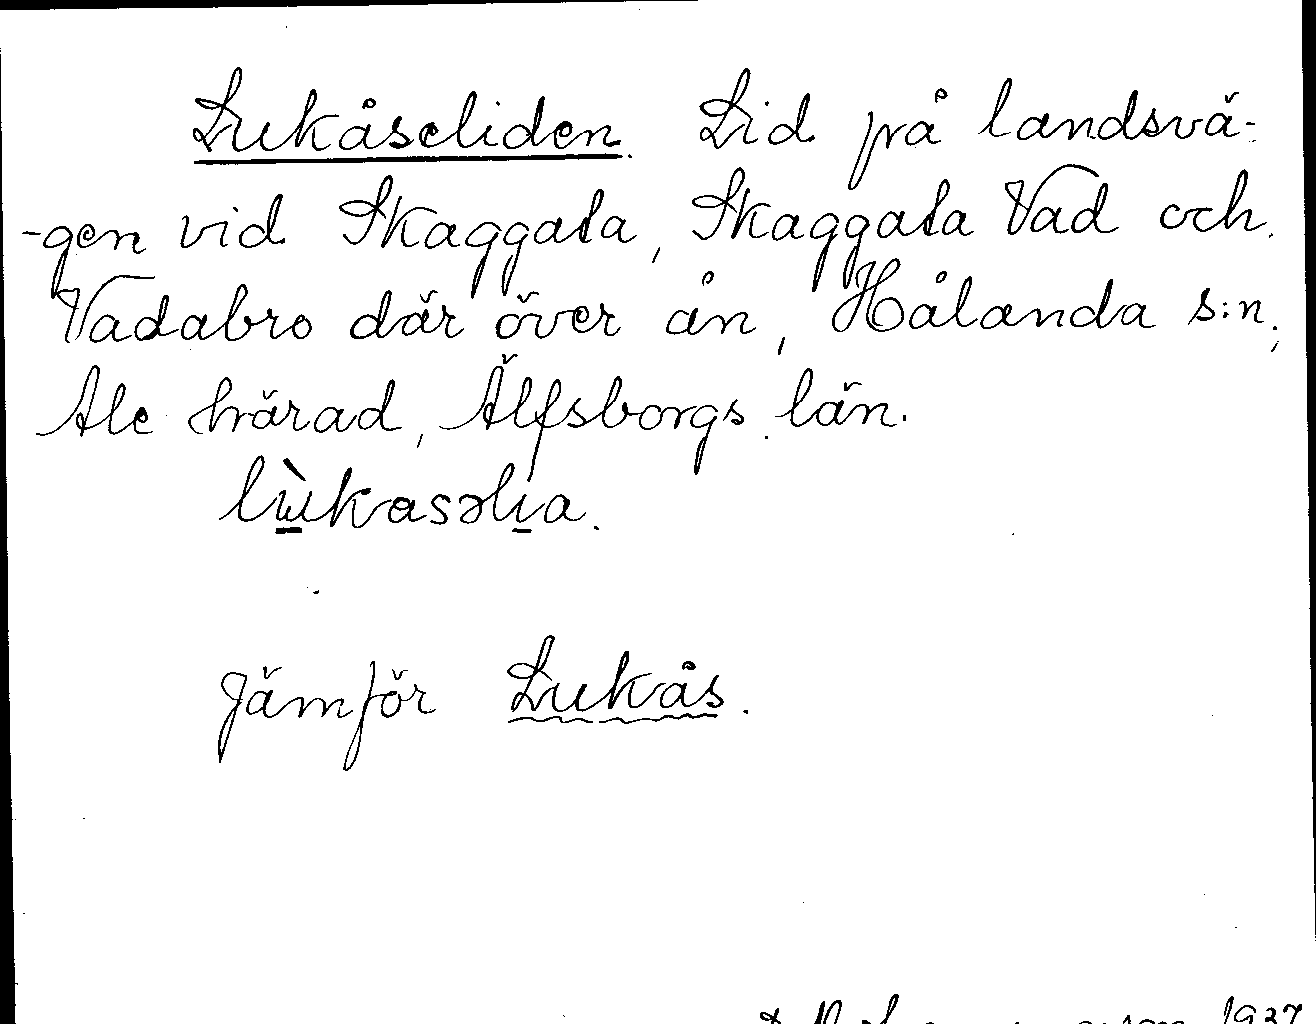 Lukåseliden. Lid på landsvä-
-gen vid Skaggata, Skaggata Vad och
Vadabro där över ån, Hålanda s:n,
Ale härad, Älfsborgs län.
lùkasəlia.
Jämför Lukås.
1927